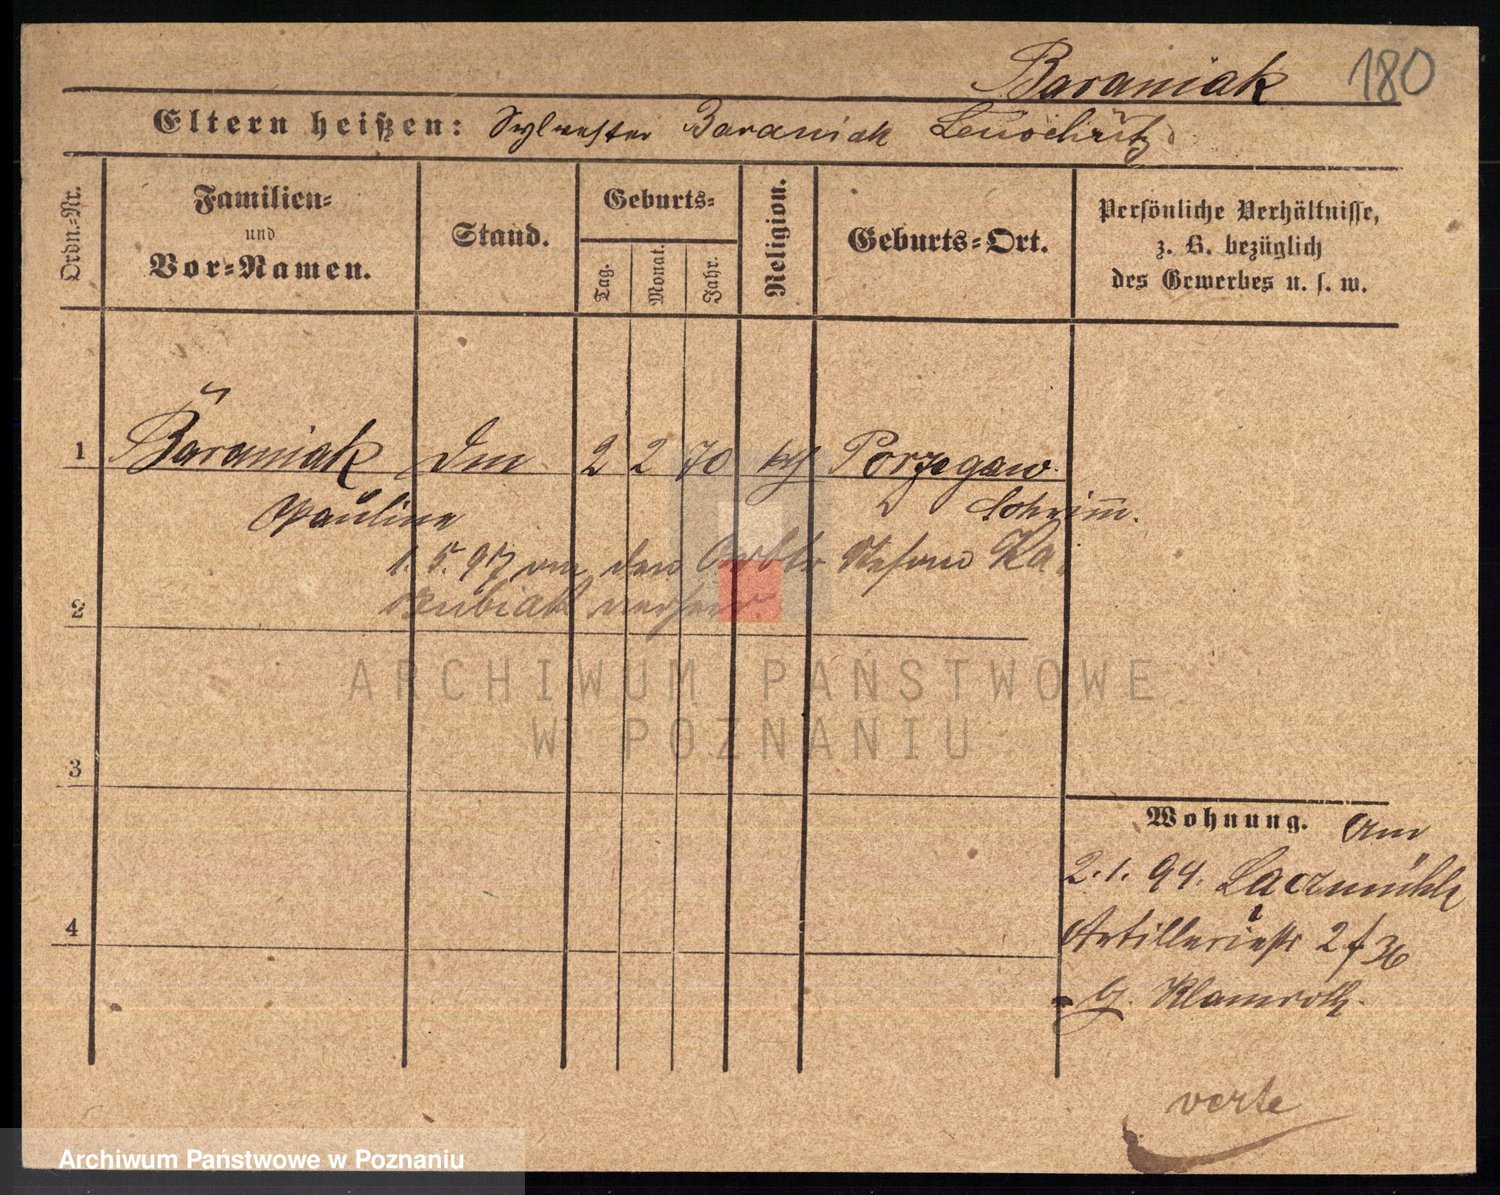 Baraniak 180
Eltern heißen: Sylvester Baraniak
Ordn.-Nr.
Familien-
und
Vor-Namen.
Stand.
Geburts-
Tag.
Monat.
Jahr.
Religion.
Geburts-Ort.
Persönliche Verhältnisse,
z. B. bezüglich
des Gewerbes u. s. w.
1 Baraniak 2 2 70 kth Porzegaw
Pauline Schrimm.
1. 5. 97 den Stefan Ka
2
3
4
ARCHIWUM PAŃSTWOWE
W POZNANIU
Wohnung. Am
2.1.94. Laczmühle
Artilleriestr 2
G. Klamroth.
verte
Archiwum Państwowe w Poznaniu